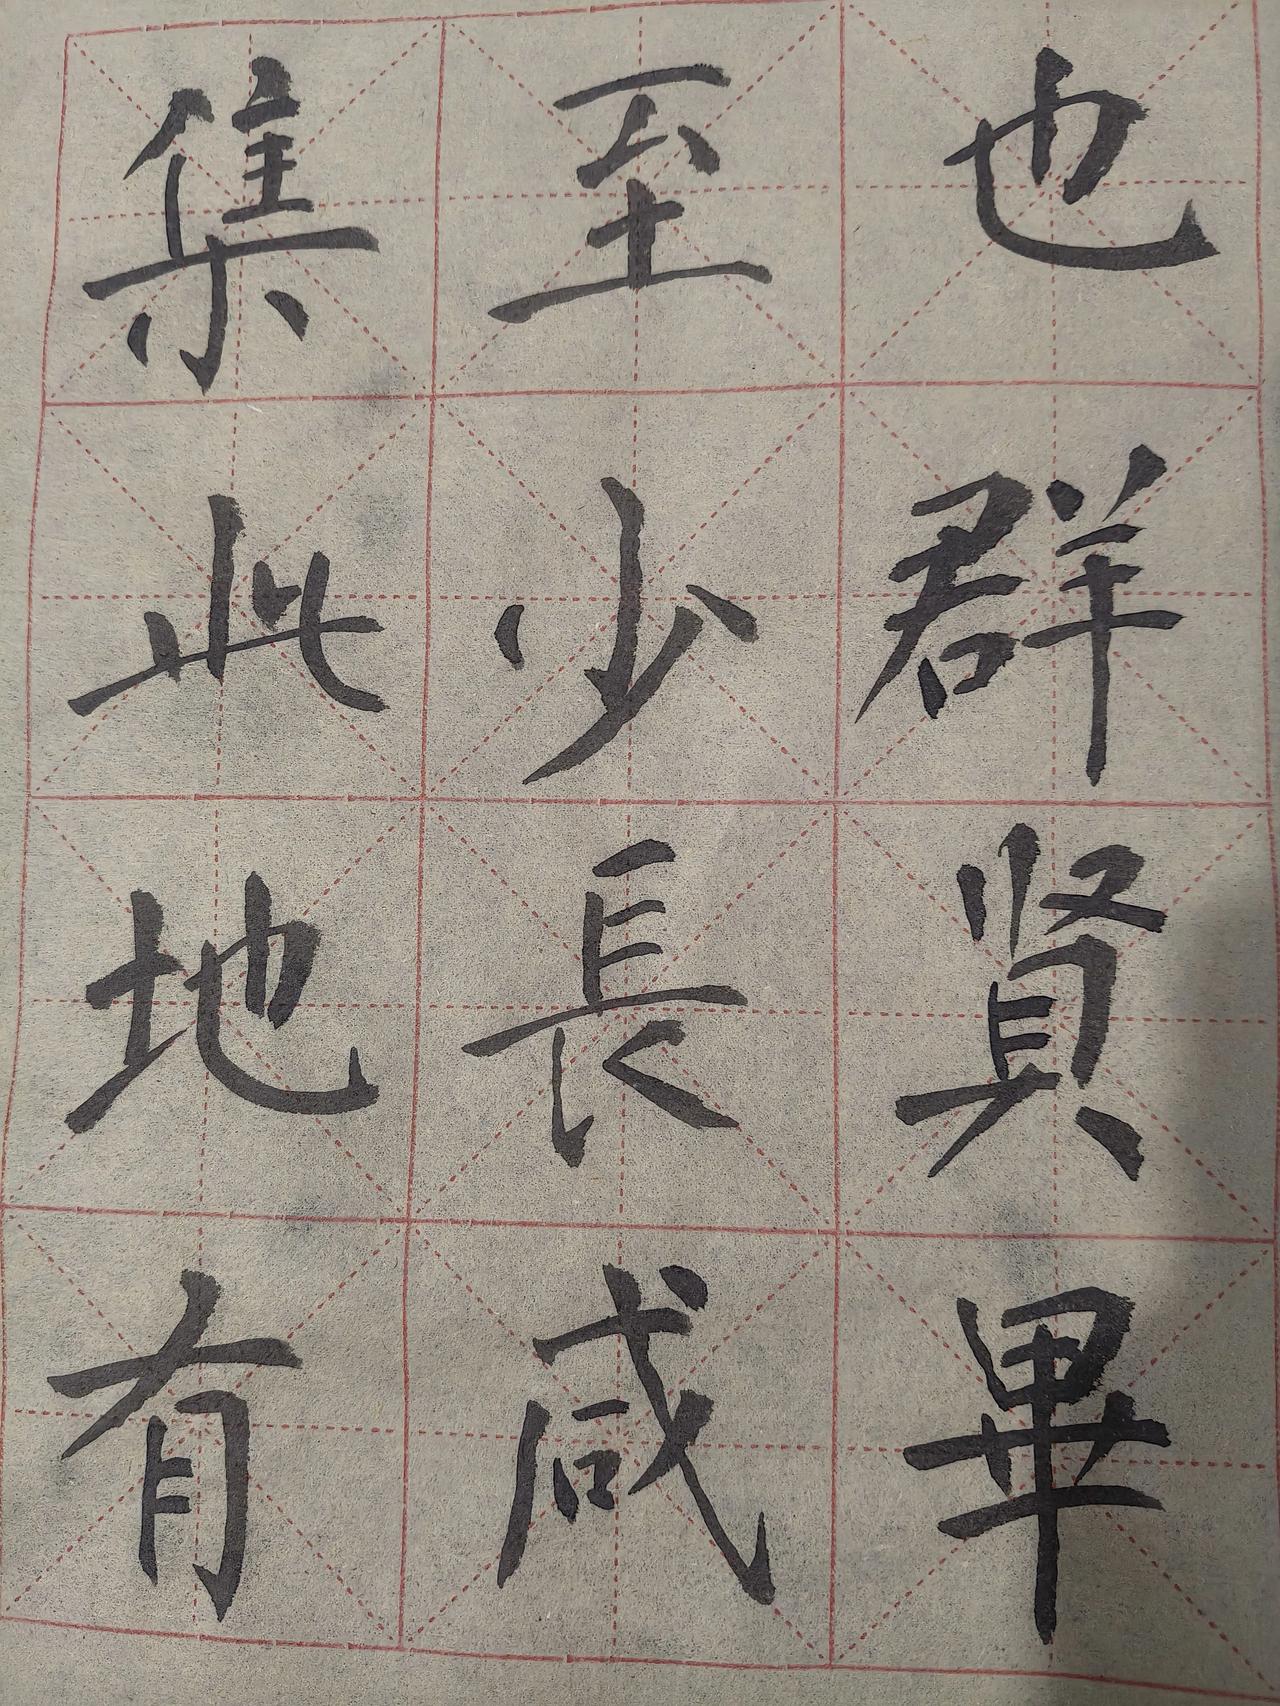 也群賢畢
至少長咸
集此地有